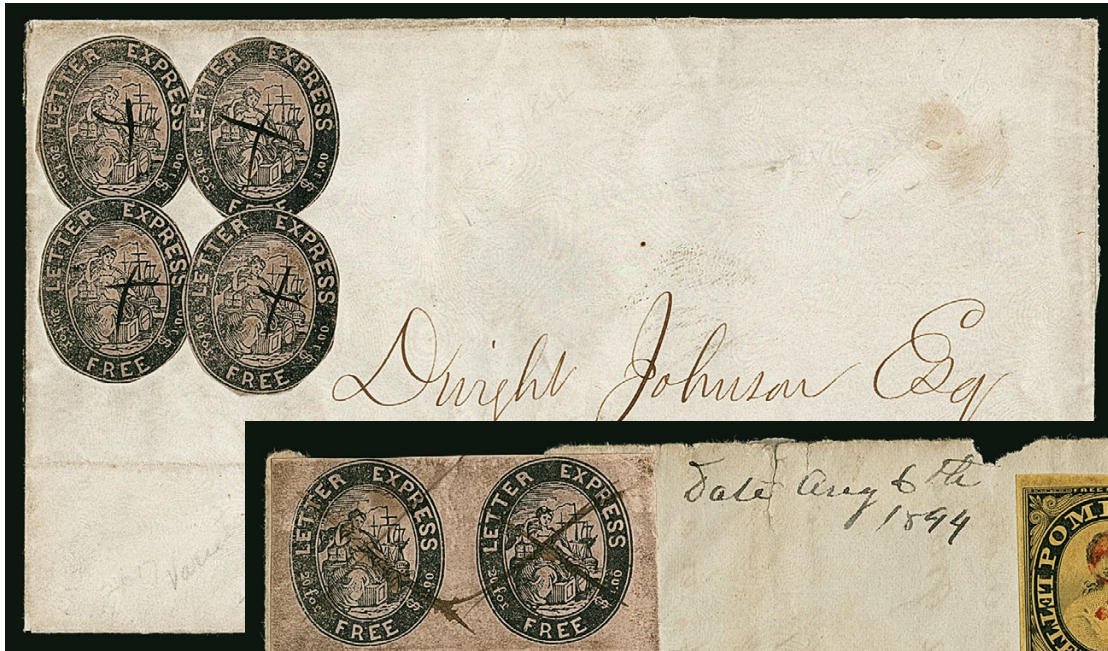 LETTER EXPRESS
20 for $1.00
FREE
LETTER EXPRESS
20 for $1.00
FREE
LETTER EXPRESS
20 for $1.00
FREE
LETTER EXPRESS
20 for $1.00
FREE
Dwight Johnson Esq
LETTER EXPRESS
20 for $1.00
FREE
LETTER EXPRESS
20 for $1.00
FREE
Date Aug 6th
1894